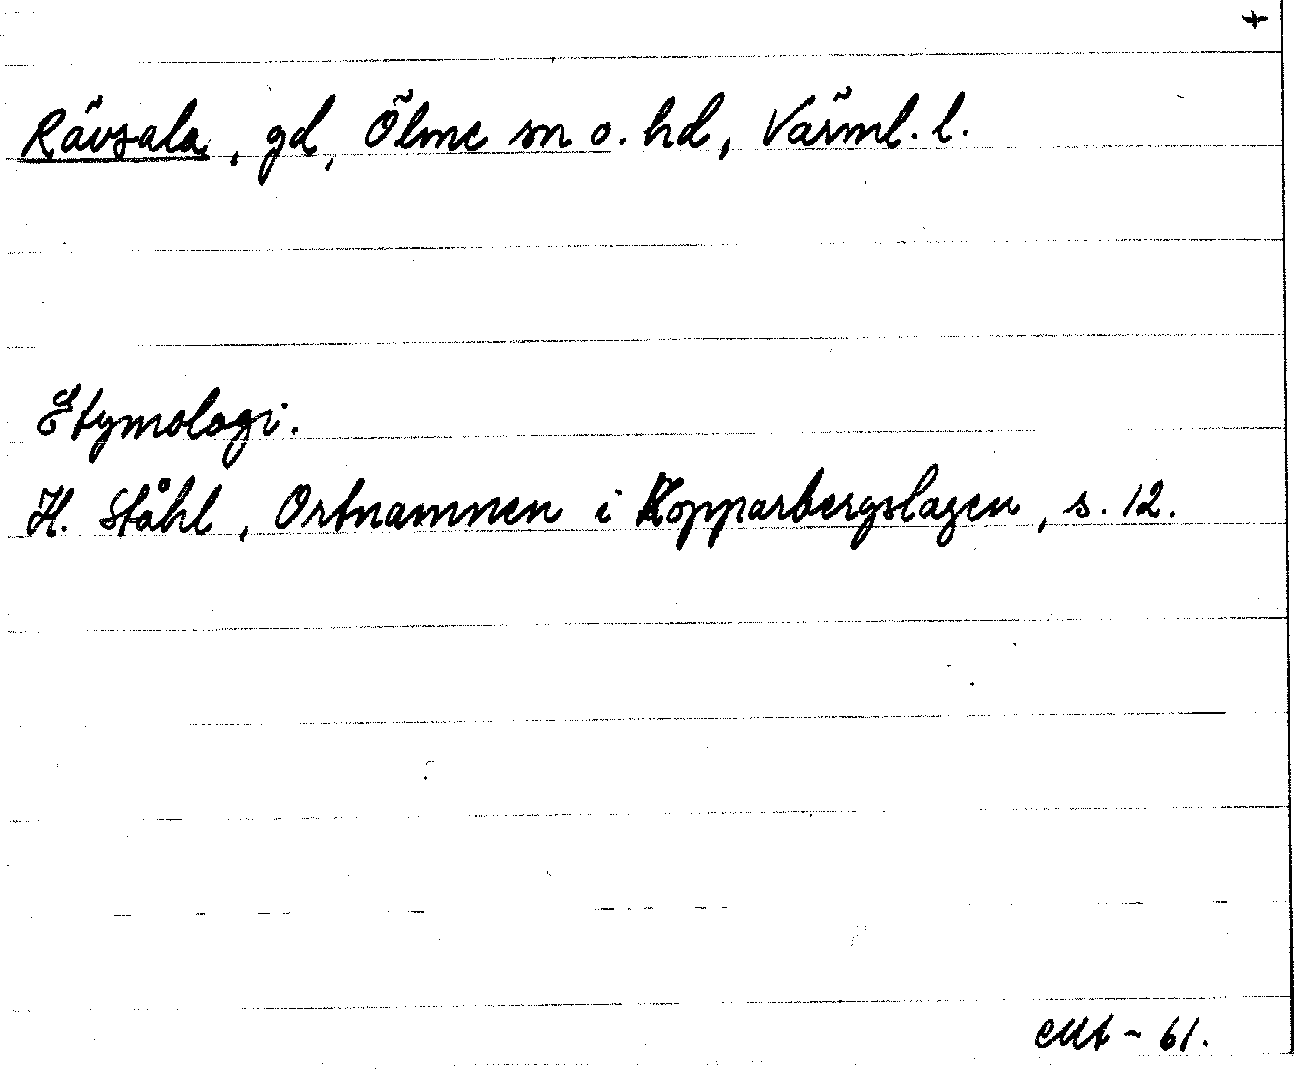 +
Rävsala, gd, Ölme sn o. hd, Värml. l.
Etymologi.
H. Ståhl, Ortnamnen i Kopparbergslagen, s. 12.
- 61.